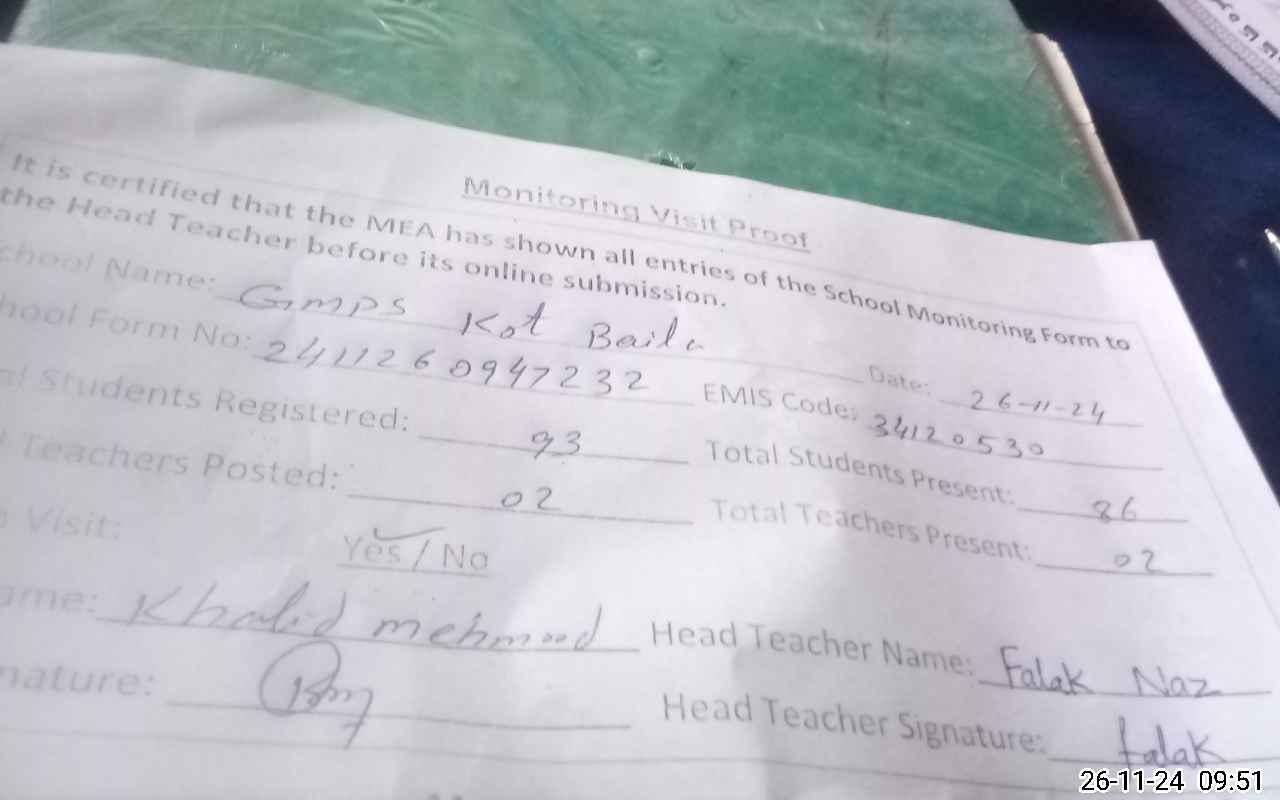 Monitoring Visit Proof
It is certified that the MEA has shown all entries of the School Monitoring Form to
the Head Teacher before its online submission.
chool Name: Gmps Kot Baila
Date: 26-11-24
hool Form No: 2411260947232 EMIS Code: 34120530
al Students Registered: 93 Total Students Present: 86
Teachers Posted: 02 Total Teachers Present: 02
Visit: Yes / No
ame: Khalid mehmood Head Teacher Name: Falak Naz
nature: Head Teacher Signature: falak
26-11-24 09:51